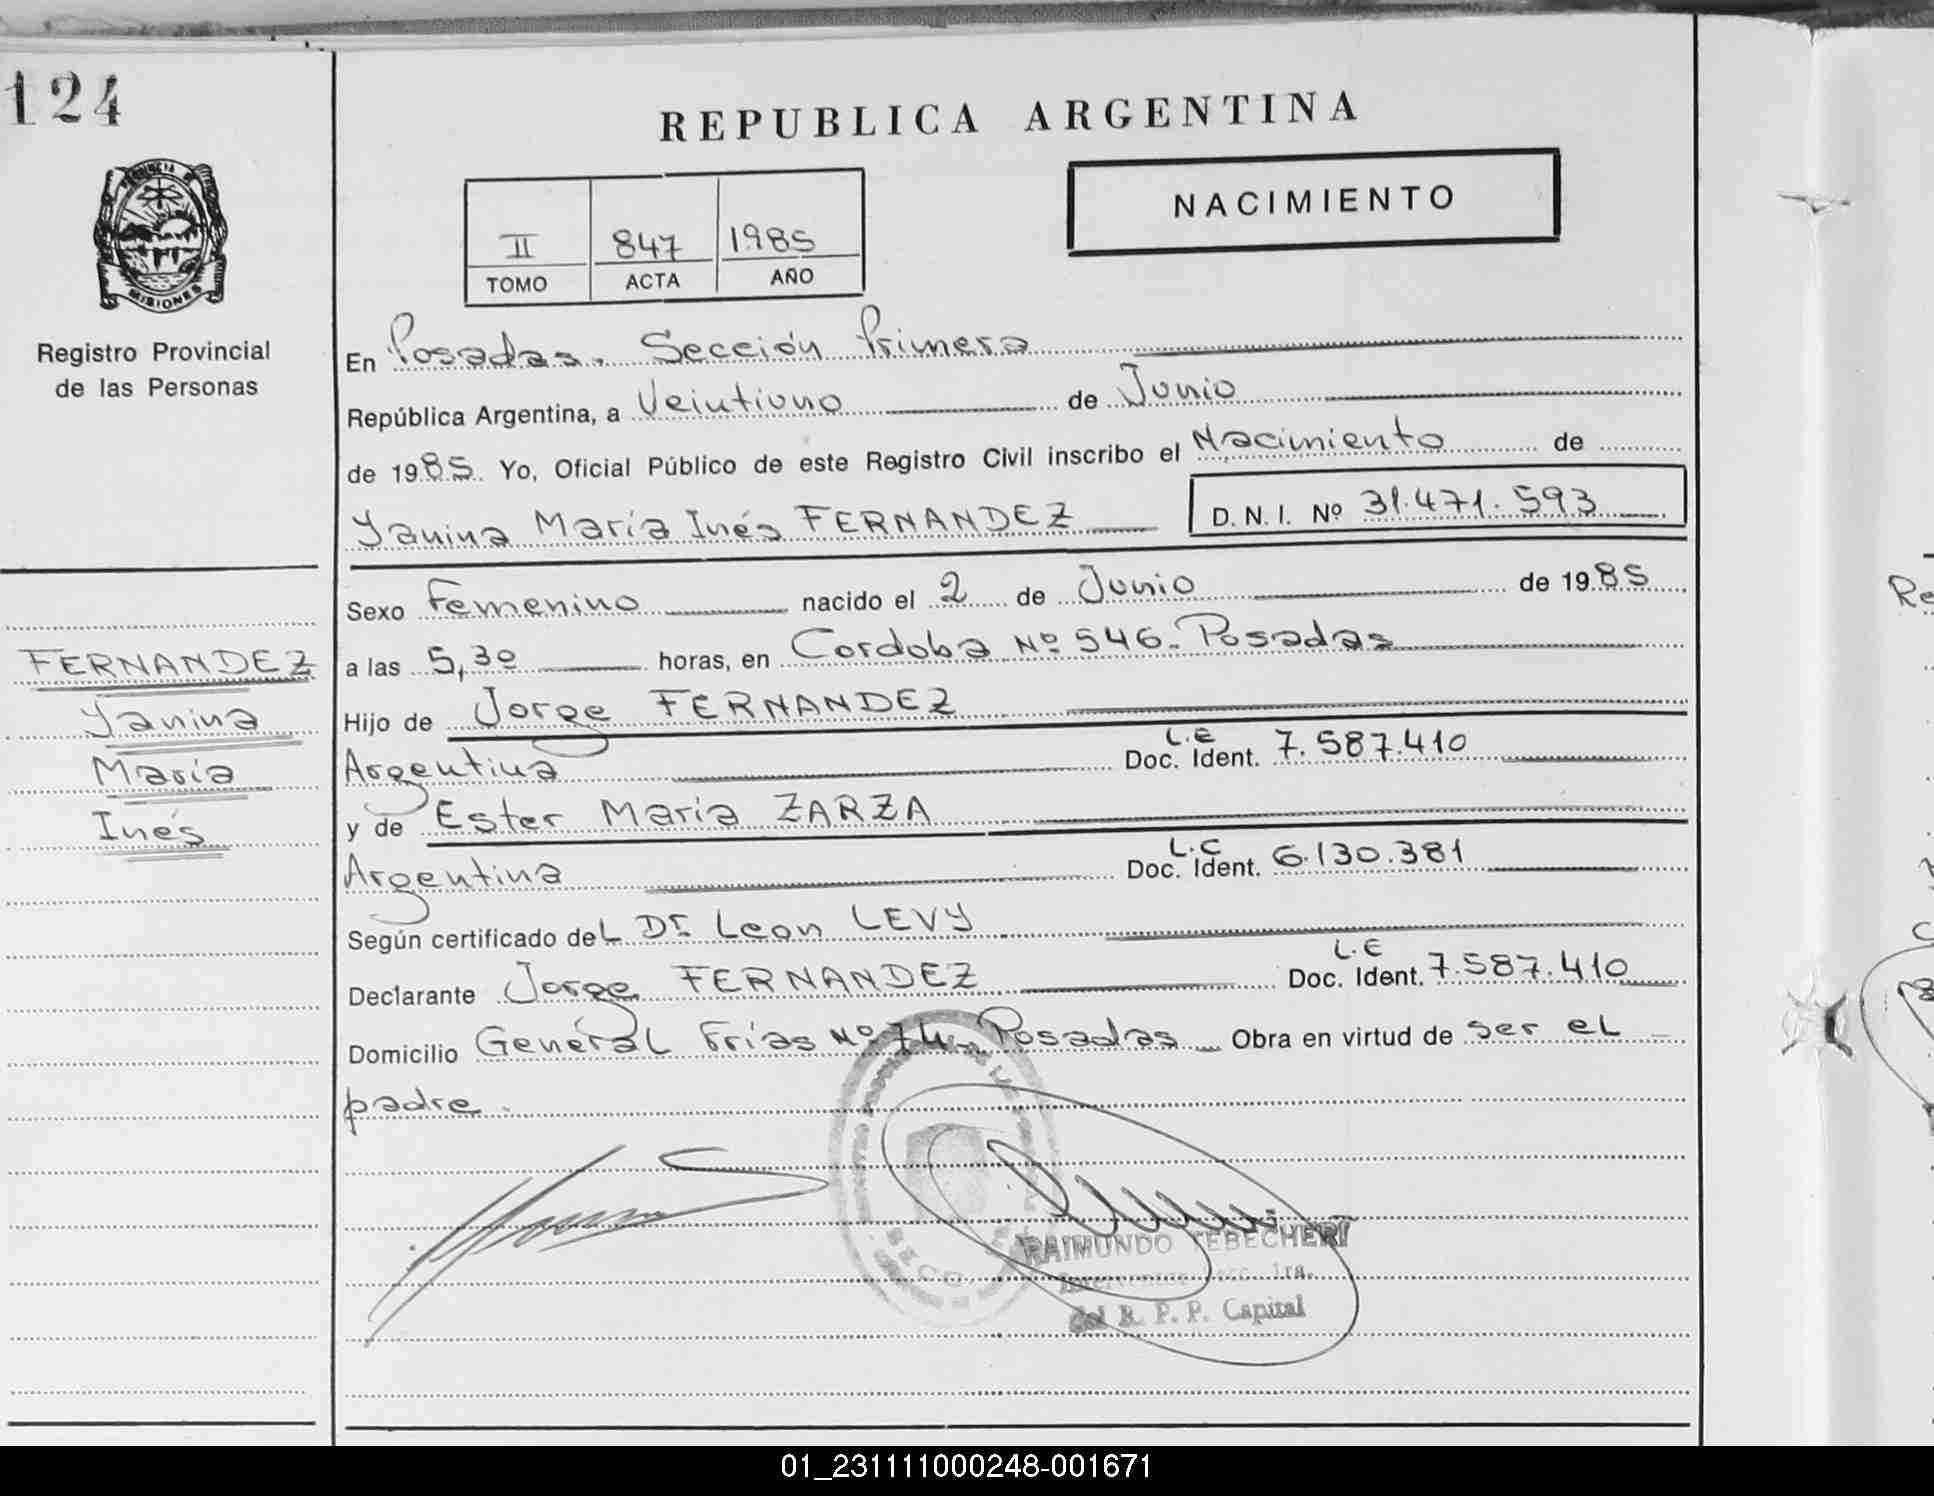 124
REPUBLICA ARGENTINA
NACIMIENTO
II 847 1985
TOMO ACTA AÑO
PROVINCIA DE
MISIONES
Registro Provincial
de las Personas
En Posadas. Sección Primera
República Argentina, a Veintiuno de Junio
de 1985. Yo, Oficial Público de este Registro Civil inscribo el Nacimiento de
Yanina María Inés FERNANDEZ D. N. I. Nº 31.471.593
Sexo Femenino nacido el 2 de Junio de 1985
a las 5,30 horas, en Cordoba Nº 546. Posadas
Hijo de Jorge FERNANDEZ
Argentina Doc. Ident. L.E 7.587.410
y de Ester Maria ZARZA
Argentina Doc. Ident. L.C 6.130.381
Según certificado del Dr. Leon LEVY
Declarante Jorge FERNANDEZ Doc. Ident. L.E 7.587.410
Domicilio General Frias Nº 74. Posadas Obra en virtud de ser el
padre.
FERNANDEZ
Yanina
María
Inés
SECC.
RAIMUNDO TEBECHERI
1ra.
del R. P. P. Capital
Re
01_231111000248-001671